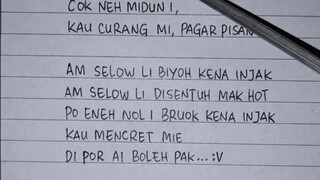 COK NEH MIDUN I,
KAU CURANG MI, PAGAR PISAN
AM SELOW LI BIYOH KENA INJAK
AM SELOW LI DISENTUH MAK HOT
PO ENEH NOL I BRUOK KENA INJAK
KAU MENCRET MIE
DI POR AI BOLEH PAK... :V